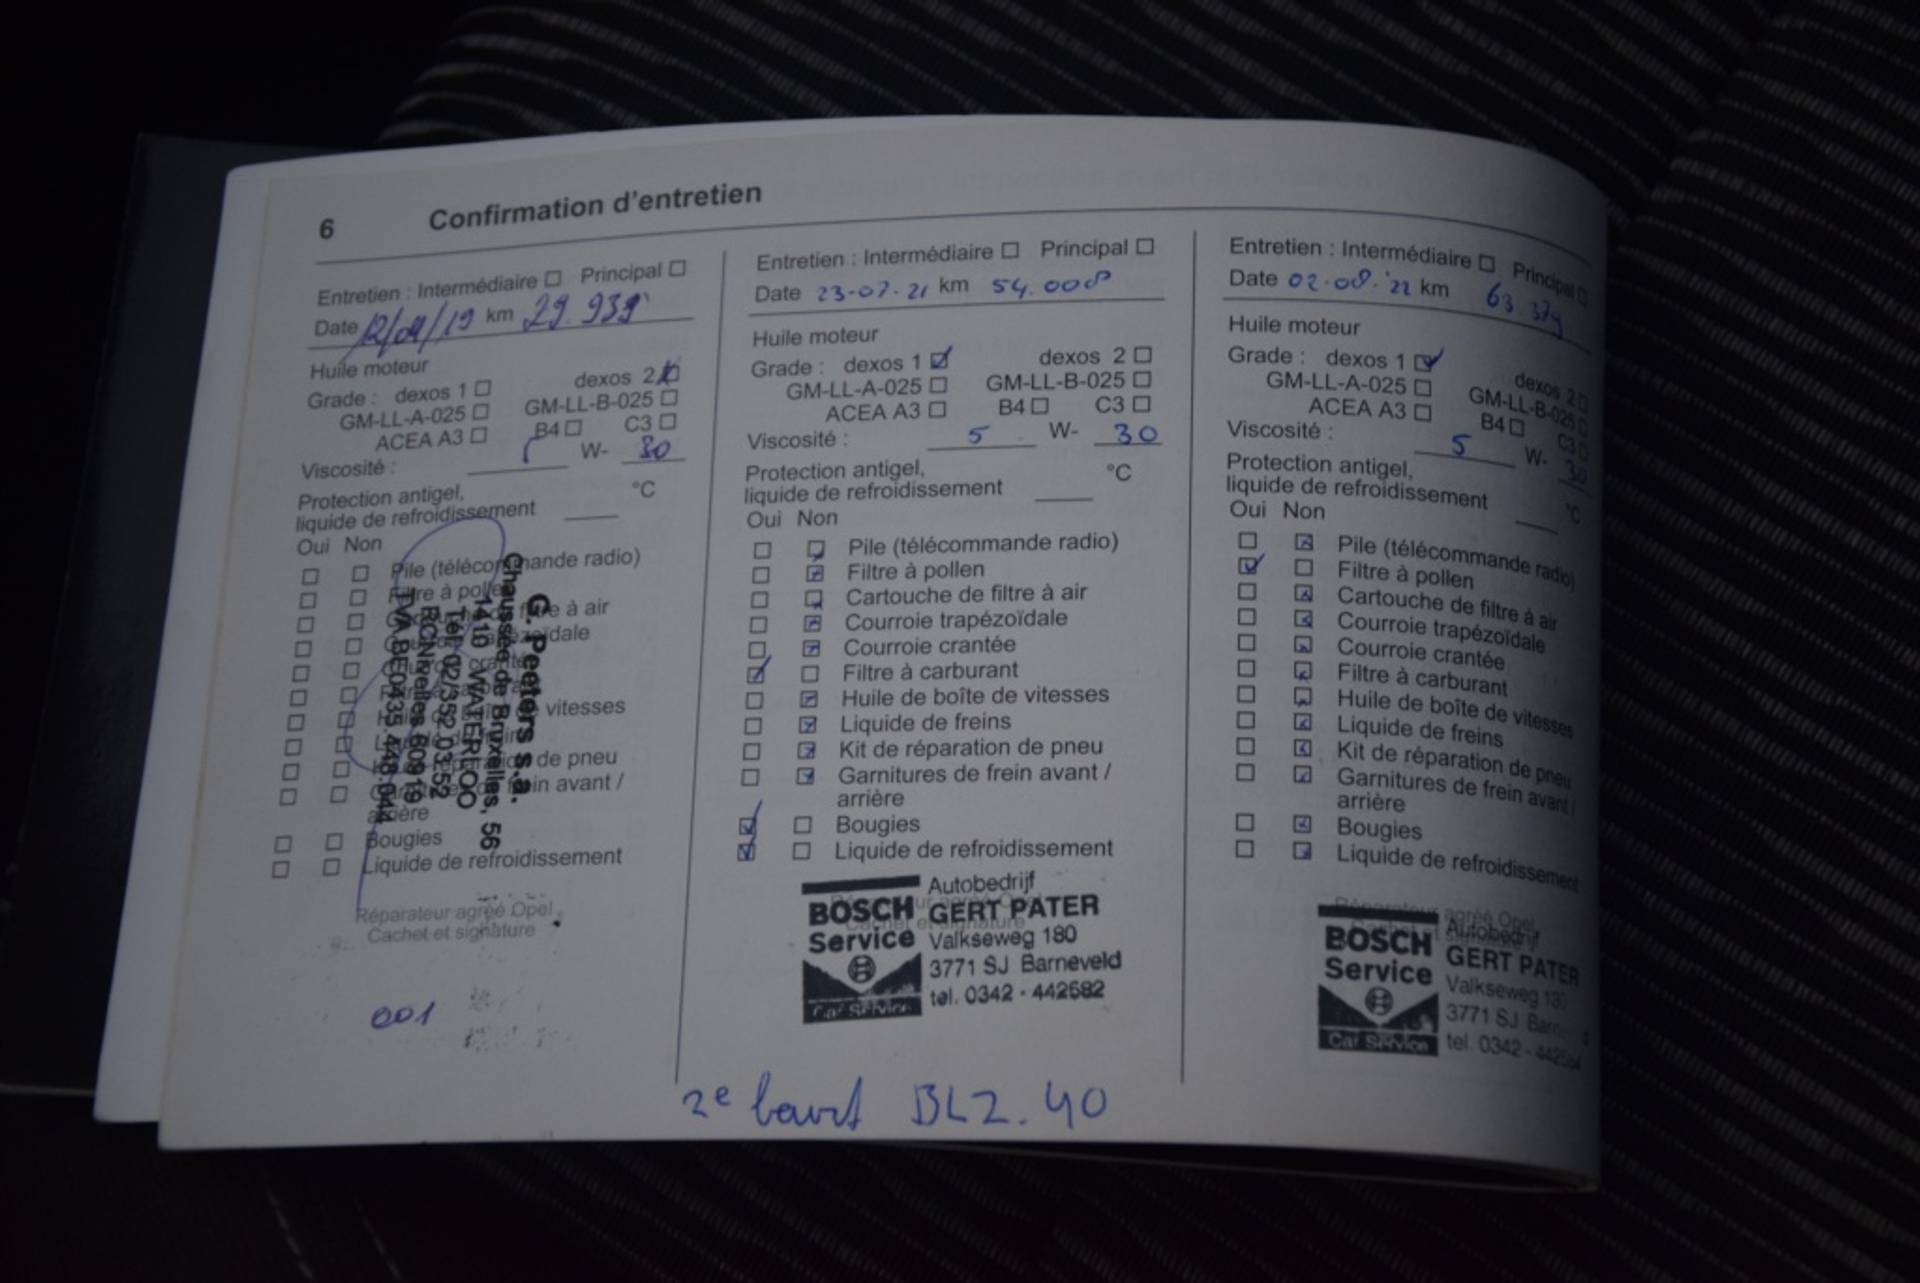 6 Confirmation d'entretien
Entretien : Intermédiaire Principal
Date 12/04/19 km 29.939
Huile moteur
Grade : dexos 1 dexos 2
GM-LL-A-025 GM-LL-B-025
ACEA A3 B4 C3
Viscosité : 5 W- 30
Protection antigel,
liquide de refroidissement °C
Oui Non
Pile (télécommande radio)
Filtre à pollen
filtre à air
trapézoïdale
crantée
vitesses
de pneu
frein avant /
arrière
Bougies
Liquide de refroidissement
G. Peeters s.a.
Chaussée de Bruxelles, 56
1410 WATERLOO
Tél. 02/352 03 52
RC Nivelles 60919
TVA BE0435.448.044
Réparateur agréé Opel
Cachet et signature
001
Entretien : Intermédiaire Principal
Date 23-07-21 km 54.008
Huile moteur
Grade : dexos 1 dexos 2
GM-LL-A-025 GM-LL-B-025
ACEA A3 B4 C3
Viscosité : 5 W- 30
Protection antigel,
liquide de refroidissement °C
Oui Non
Pile (télécommande radio)
Filtre à pollen
Cartouche de filtre à air
Courroie trapézoïdale
Courroie crantée
Filtre à carburant
Huile de boîte de vitesses
Liquide de freins
Kit de réparation de pneu
Garnitures de frein avant /
arrière
Bougies
Liquide de refroidissement
BOSCH
Service
Car Service
Autobedrijf
GERT PATER
Valkseweg 180
3771 SJ Barneveld
tel. 0342 - 442582
Entretien : Intermédiaire Principal
Date 02-08-'22 km 63.379
Huile moteur
Grade : dexos 1 dexos 2
GM-LL-A-025 GM-LL-B-025
ACEA A3 B4 C3
Viscosité : 5 W- 30
Protection antigel,
liquide de refroidissement °C
Oui Non
Pile (télécommande radio)
Filtre à pollen
Cartouche de filtre à air
Courroie trapézoïdale
Courroie crantée
Filtre à carburant
Huile de boîte de vitesses
Liquide de freins
Kit de réparation de pneu
Garnitures de frein avant /
arrière
Bougies
Liquide de refroidissement
Réparateur agréé Opel
BOSCH
Service
Car Service
Autobedrijf
GERT PATER
Valkseweg
3771 SJ
tel. 0342
2e beurt BLZ. 40